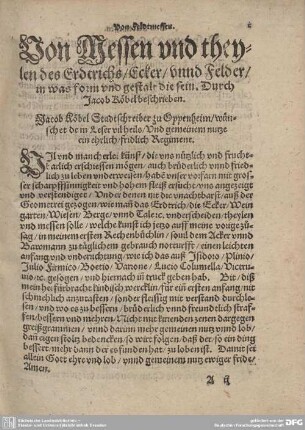 Von Feldtmessen.
Von Messen vnd they-
len des Erderichs/ Ecker/ vnnd Felder/
in was form vnd gestalt die sein. Durch
Jacob Köbel beschrieben.
Jacob Köbel Stadtschreiber zu Oppenheim/ wün-
schet dem Leser vil heils/ Vnd gemeinem nutze
ein ehrlich/ fridlich Regiment.
Vil vnd manch erlei künst/ die vns nützlich vnd frucht-
barlich erschiessen mögen/ auch brüderlich vnnd frid-
lich zu leben vnderweisen/ habē vnser vorfarn mit gros-
ser scharpffsinnigkeit vnd hohem fleiß ersucht/ vns angezeygt
vnd verstendiget/ Vnder denen nit die vnachtbarst/ auß der
Geometrei gezogen/ wie man das Erdtrich/ die Ecker/ Wein
garten/ Wiesen/ Berge/ vnnd Tale ꝛc. vnderscheiden/ theylen
vnd messen solle/ welche kunst ich jetzo auff meine vorige zůsag/
in meinem ersten Rechenbüchlin/ soul dem Acker vnnd
Bawmann zu täglichem gebrauch notturfft/ einen leichten
anfang vnd vnderrichtung/ wie ich das auß Isidoro/ Plinio/
Julio Famico/ Boetio/ Varone/ Lucio Columella/ Victru-
uio ꝛc. gezogen/ vnd hiernach in truck geben hab. Bit/ diß
mein herfürbracht kindisch wercklin/ für ein ersten anfang/ nit
schmehlich anzutasten/ sonder fleissig mit verstand durchlo-
sen/ vnd wo es zu bessern/ brüderlich vnnd freundtlich straf-
fen/ bessern vnd mehren/
greißgrammen/ vnnd darinn mehr gemeinen nutz vnnd lob/
dan eigen stoltz bedencken/ so wirt folgen/ daß der/ so ein ding
bessert/ mehr dann der erfunden hat/ zu loben ist. Damit sei
allein Gott ehre vnd lob/ vnnd gemeinem nutz ewiger fride/
Amen.